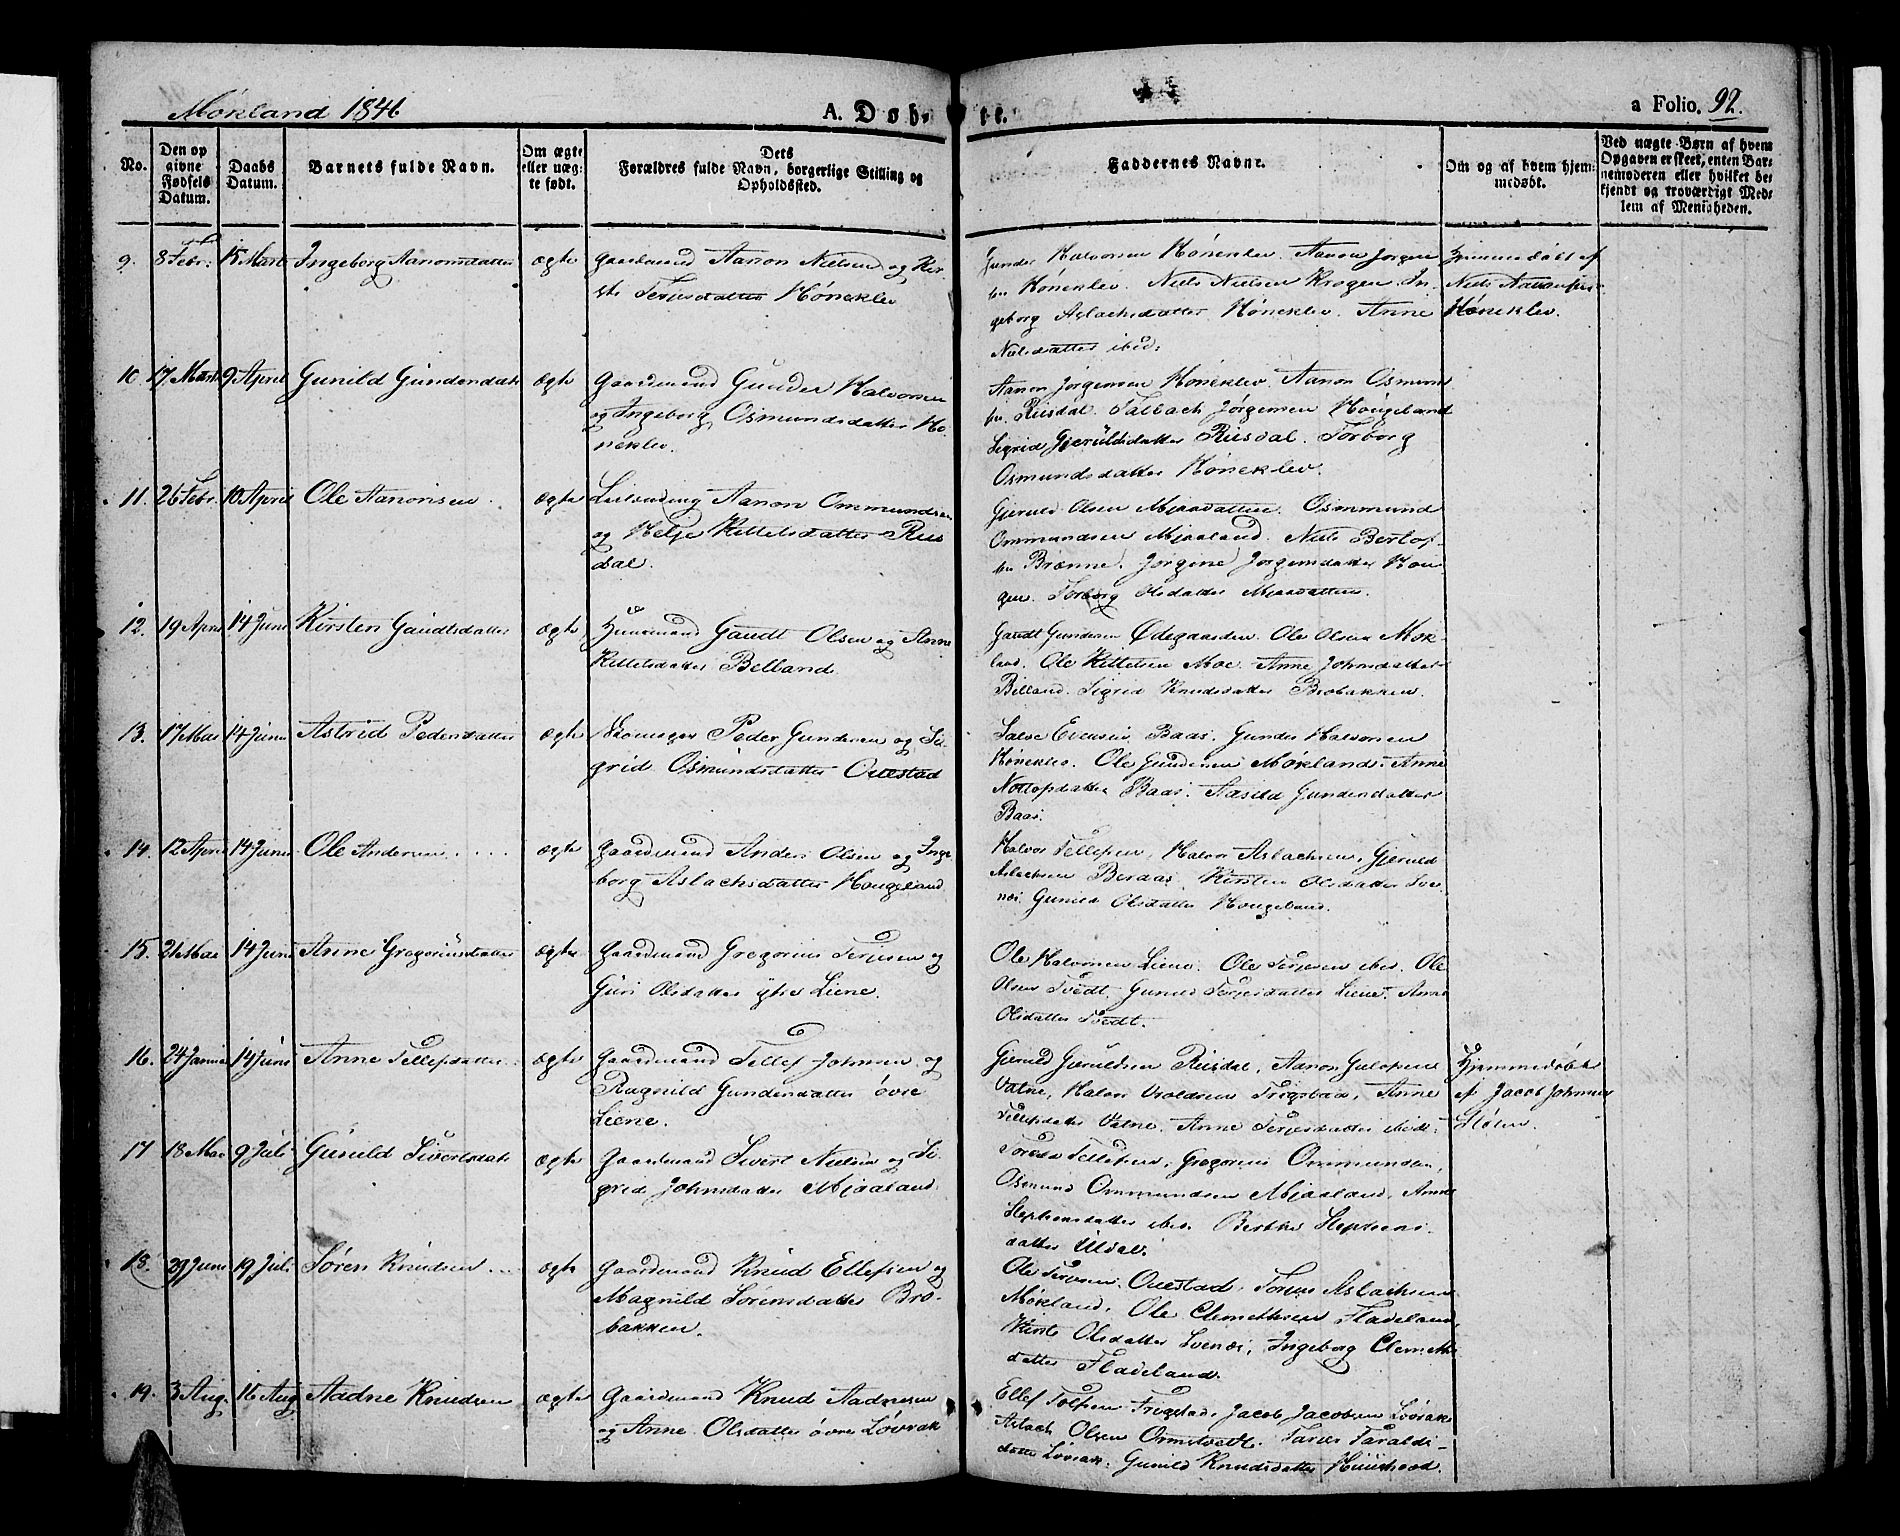 Mokland 1846
A. Døb-te.
a Folio. 92.
No.
Den op givne Fødsels Datum.
Daabs Datum.
Barnets fulde Navn.
Om ægte eller uæg- te født.
Dets Forældres fulde Navn, borgerlige Stilling og Opholdssted.
Faddernes Navne.
Om og af hvem hjem- medøbt.
Ved uægte Børn af hvem Opgaven er skeet, enten Bar- nemoderen eller hvilket be- kjendt og troværdigt Med- lem af Menigheden.
9. 8 Febr: 15 Marts Ingeborg Aanonsdatter ægte Gaardmand Aanon Nielsen og Kir-
ste Terjesdatter Hóneklev
Gunder Halvorsen Hóneklev. Aanon Jørgen-
sen Hóneklev. Niels Nielsen Krogen. In-
geborg Aslachsdatter Hóneklev. Anne
Nielsdatter ibid.
Hjemmedøbt af
Niels Aanonsen
Hóneklev.
10. 17 Marts 9 April Gunild Gundersdatr ægte Gaardmand Gunder Halvorsen
og Ingeborg Osmundsdatter Hó-
neklev.
Aanon Jørgensen Hóneklev. Aanon Osmund-
sen Riisdal. Jørgensen Hougeland
Sigrid Gjeruldsdatter Riisdal. Torborg
Osmundsdatter Hóneklev.
11. 26 Febr. 10 April Ole Aanonsen ægte Leilænding Aanon Ommundsen
og Helje Kittelsdatter Riis
dal.
Gjeruld Olsen Mjaavatten. Osmund
Ommundsen Mjaaland. Niels Bertof-
sen Brønne. Jørgine Jørgensdatter Hou
gen. Torborg Olsdatter Mjaavatten.
12. 19 April 14 Juni Kirsten Gaudtsdatter ægte Huusmand Gaudt Olsen og Anne
Kittelsdatter Belland
Gaudt Gundersen Ødegaarden. Ole Olsen Mok-
land. Ole Kittelsen Moe. Anne Johnsdatter
Billand. Sigrid Knudsdatter Brobakken.
13. 17 Mai 14 Juni Astrid Pedersdatter ægte Peder Gundersen og Si-
grid Osmundsdatter Ouestad
Salve Evensen Baas. Gunder Halvorsen
Hóneklev. Ole Gundersen Mokland. Anne
Nottopsdatter Baas. Aasild Gundersdatter
Baas.
14. 12 April 14 Juni Ole Andersen ægte Gaardmand Anders Olsen og Inge
borg Aslachsdatter Hougeland
Halvor Tellefsen, Halvor Aslachsen, Gjeruld
Aslachsen Beraas, Kirsten Olsdatter Sve
næs. Gunild Olsdatter Hougeland.
15. 21 Mai 14 Juni Anne Gregoriusdatter ægte Gaardmand Gregorius Terjesen og
Guri Olsdatter yttre Liene.
Ole Halvorsen Liene. Ole Terjesen ibid. Ole
Olsen Tvedt. Gunild Terjesdatter Liene. Anne
Olsdatter Tvedt.
16. 24 Januar 14 Juni Anne Tellefsdatter ægte Gaardmand Tellef Johnsen og
Ragnild Gundersdatter óvre
Liene.
Gjeruld Gjeruldsen Riisdal, Aanon
Vatne, Halvor Frigstad, Anne
Tellefsdatter Vatne. Anne Terjesdatter ibid.
Hjemmedøbt
af Jacob Johnsen
17 18 Mai 9 Juli Gunild Sivertsdatr ægte Gaardmand Sivert Nielsen og Si-
grid Johnsdatter Mjaaland.
Tellefsen, Gregorius Ommundsen,
Osmund Ommundsen Mjaaland, Anne
Stephensdatter ibid. Berthe Stephens-
datter Uldal.
18. 29 Juni 19 Juli Søren Knudsen ægte Gaardmand Knud Ellefsen og
Magnild Sørensdatter Bro-
bakken.
Ole Terjesen Ouestad. Aslachsen
Mokland. Ole Clemethsen Fladeland,
Kirste Olsdatter Svenæs, Ingeborg Clemeths
datter Fladeland.
19. 3 Aug. 16 Aug Aadne Knudsen ægte Gaardmand Knud Aadnesen
og Anne Olsdatter óvre Lóvrak
Ellef Frigstad, Jacob Jacobsen Lóvrak
Aslach Olsen Ormstvedt. Taralds-
datter Lóvrak. Gunild Knudsdatter